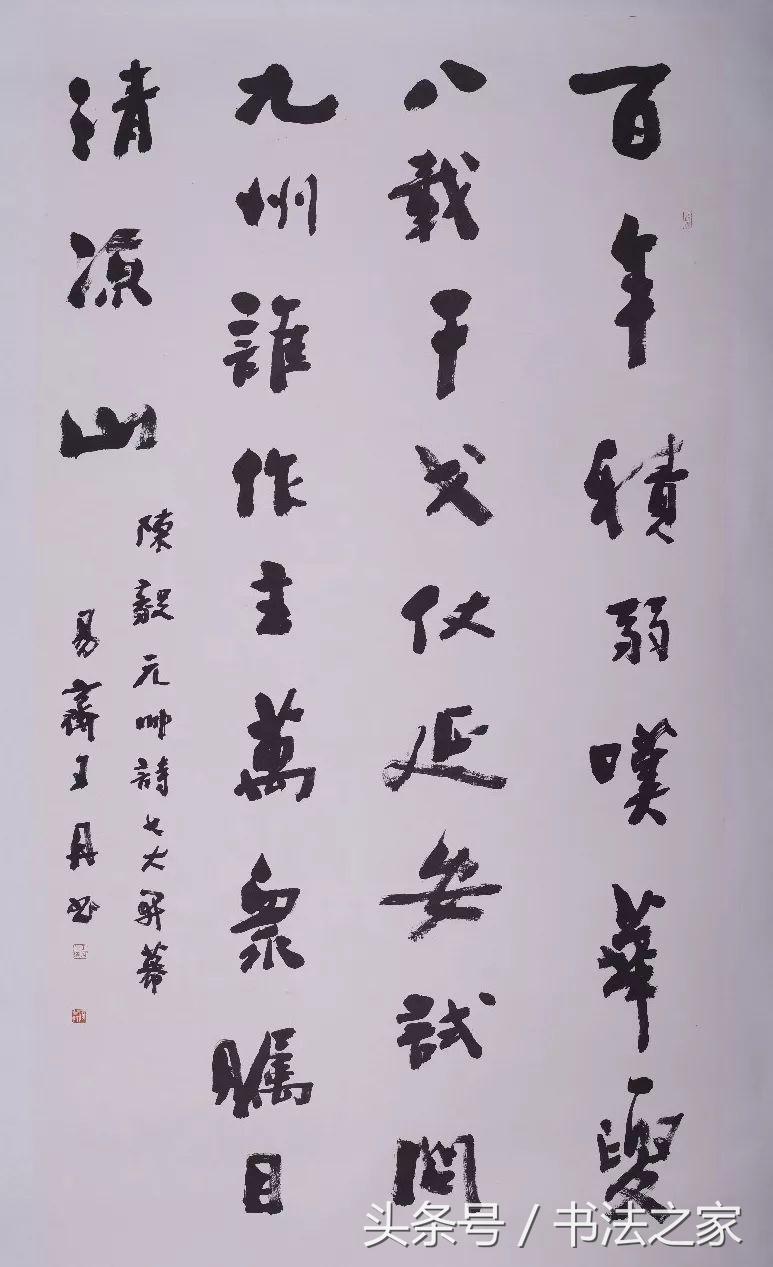 百年積弱嘆華夏
八載干戈仗延安試問
九州誰作主萬眾瞩目
清凉山
陳毅元帥詩七大開幕
易齋王丹書
头条号 / 书法之家